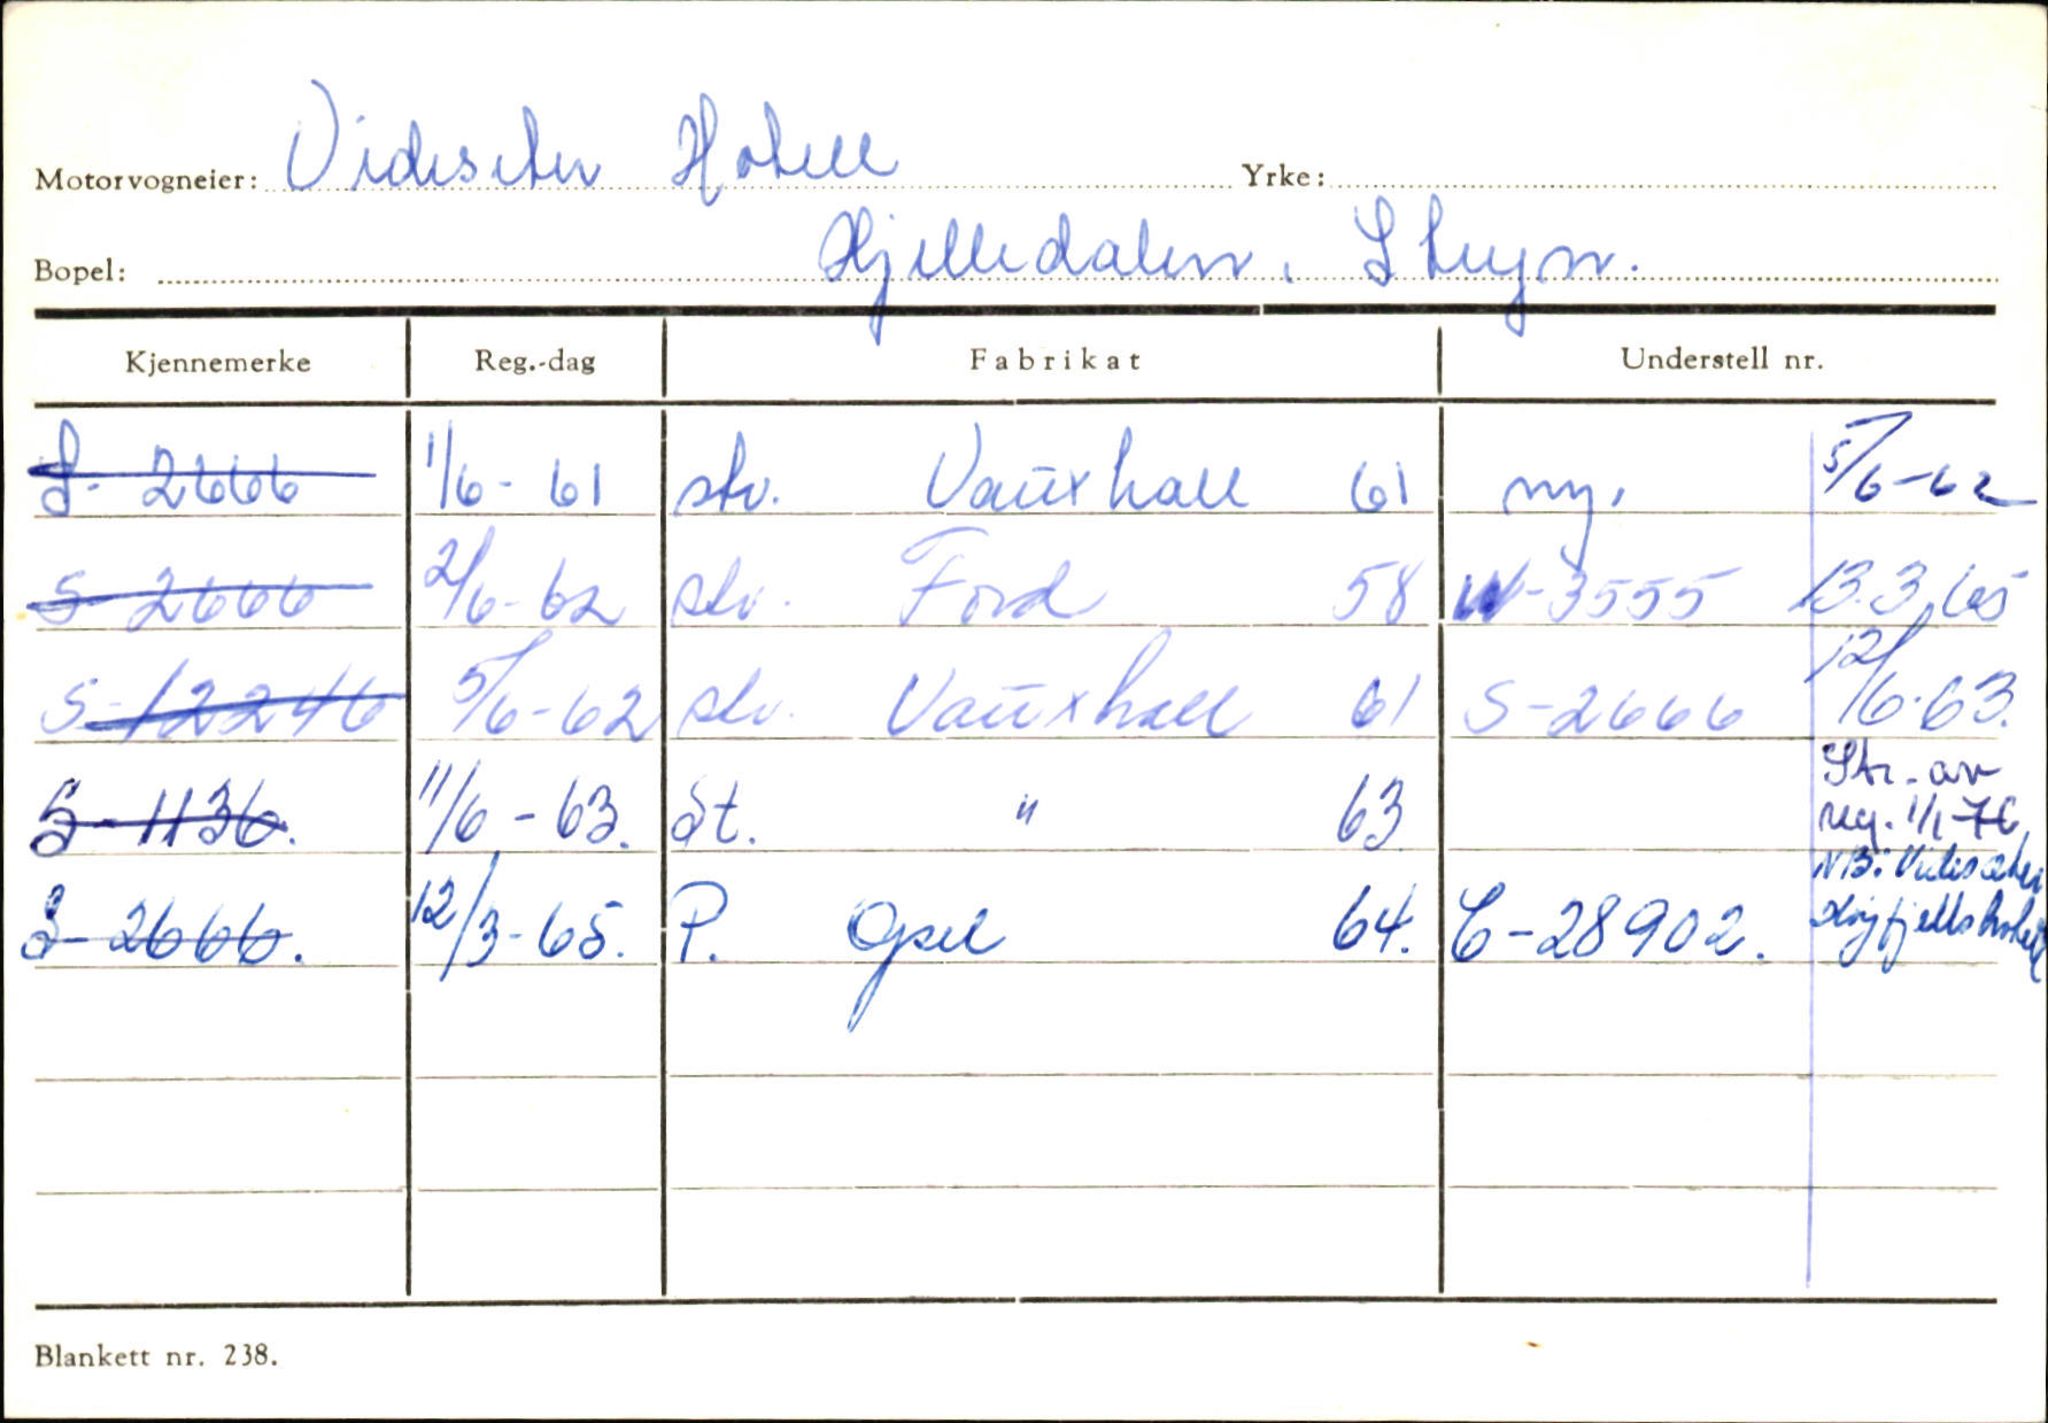 Motorvogneier: Videseter Hotell Yrke:
Bopel: Hjelledalen, Stryn.
Kjennemerke Reg.-dag Fabrikat Understell nr.
S- 2666 1/6- 61 stv. Vauxhall 61 ny. 5/6-62
S-2666 2/6-62 stv. Ford 58 W-3555 13.3.65
S-12246 5/6-62 stv. Vauxhall 61 S-2666 12/6-63.
S-1136. 11/6-63. St. " 63 Str. av
reg. 1/1-76.
S-2666. 12/3-65. P. Opel 64. C-28902. NB: Videseter
Høyfjellshotell
Blankett nr. 238.